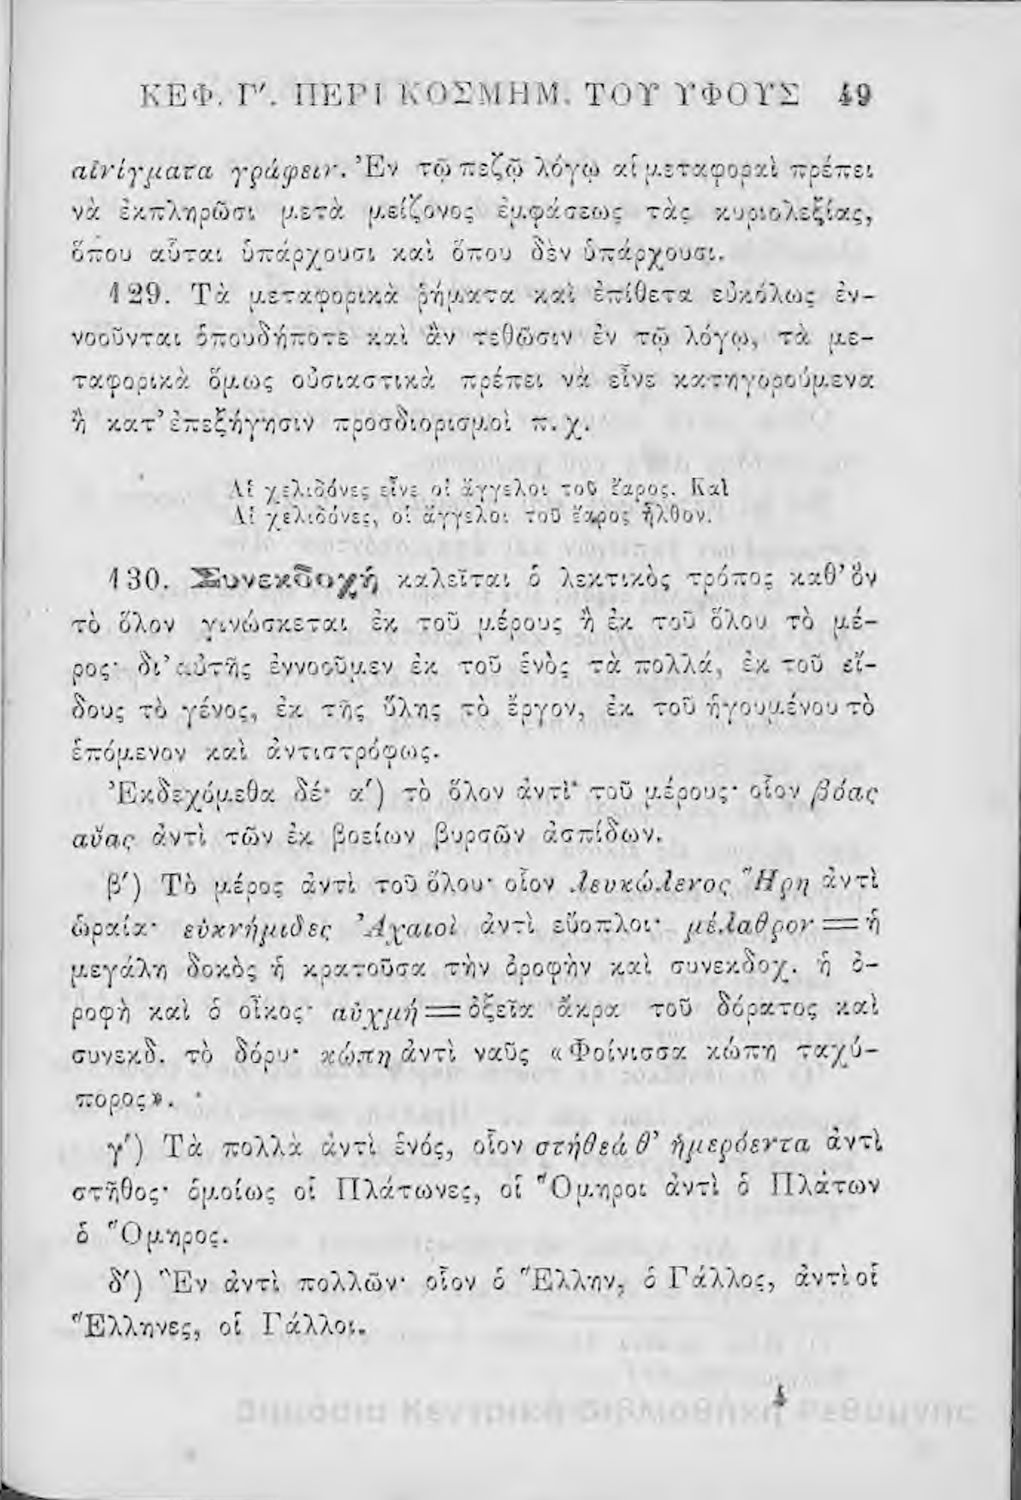 ΚΕΦ. Γ'. ΠΕΡΙ ΚΟΣΜΗΜ. ΤΟΥ ΥΦΟΥΣ 49
αἰνίγματα γράφειν. Ἐν τῷ πεζῷ λόγῳ αἱ μεταφοραὶ πρέπει
νὰ ἐκπληρῶσι μετὰ μείζονος ἐμφάσεως τὰς κυριολεξίας,
ὅπου αὗται ὑπάρχουσι καὶ ὅπου δὲν ὑπάρχουσι.
129. Τὰ μεταφορικὰ ῥήματα καὶ ἐπίθετα εὐκόλως ἐν-
νοοῦνται ὁπουδήποτε καὶ ἂν τεθῶσιν ἐν τῷ λόγῳ, τὰ με-
ταφορικὰ ὅμως οὐσιαστικὰ πρέπει νὰ εἶνε κατηγορούμενα
ἢ κατ' ἐπεξήγησιν προσδιορισμοὶ π. χ.
Αἱ χελιδόνες εἶνε οἱ ἄγγελοι τοῦ ἔαρος. Καὶ
Αἱ χελιδόνες, οἱ ἄγγελοι τοῦ ἔαρος ἦλθον.
130. Συνεκδοχή καλεῖται ὁ λεκτικὸς τρόπος καθ' ὃν
τὸ ὅλον γινώσκεται ἐκ τοῦ μέρους ἢ ἐκ τοῦ ὅλου τὸ μέ-
ρος· δι' αὐτῆς ἐννοοῦμεν ἐκ τοῦ ἑνὸς τὰ πολλά, ἐκ τοῦ εἴ-
δους τὸ γένος, ἐκ τῆς ὕλης τὸ ἔργον, ἐκ τοῦ ἡγουμένου τὸ
ἑπόμενον καὶ ἀντιστρόφως.
Ἐκδεχόμεθα δέ· α') τὸ ὅλον ἀντὶ τοῦ μέρους· οἷον βόας
αὔας ἀντὶ τῶν ἐκ βοείων βυρσῶν ἀσπίδων.
β') Τὸ μέρος ἀντὶ τοῦ ὅλου· οἷον λευκώλενος Ἥρη ἀντὶ
ὡραία· εὐκνήμιδες Ἀχαιοὶ ἀντὶ εὔοπλοι· μέλαθρον = ἡ
μεγάλη δοκὸς ἡ κρατοῦσα τὴν ὀροφὴν καὶ συνεκδοχ. ἡ ὀ-
ροφὴ καὶ ὁ οἶκος· αἰχμή = ὀξεῖα ἄκρα τοῦ δόρατος καὶ
συνεκδ. τὸ δόρυ· κώπη ἀντὶ ναῦς «Φοίνισσα κώπη ταχύ-
πορος».
γ') Τὰ πολλὰ ἀντὶ ἑνός, οἷον στήθεά θ' ἱμερόεντα ἀντὶ
στῆθος· ὁμοίως οἱ Πλάτωνες, οἱ Ὅμηροι ἀντὶ ὁ Πλάτων
ὁ Ὅμηρος.
δ') Ἓν ἀντὶ πολλῶν· οἷον ὁ Ἕλλην, ὁ Γάλλος, ἀντὶ οἱ
Ἕλληνες, οἱ Γάλλοι.
4
Δημόσια Κεντρική Βιβλιοθήκη Ρεθύμνης